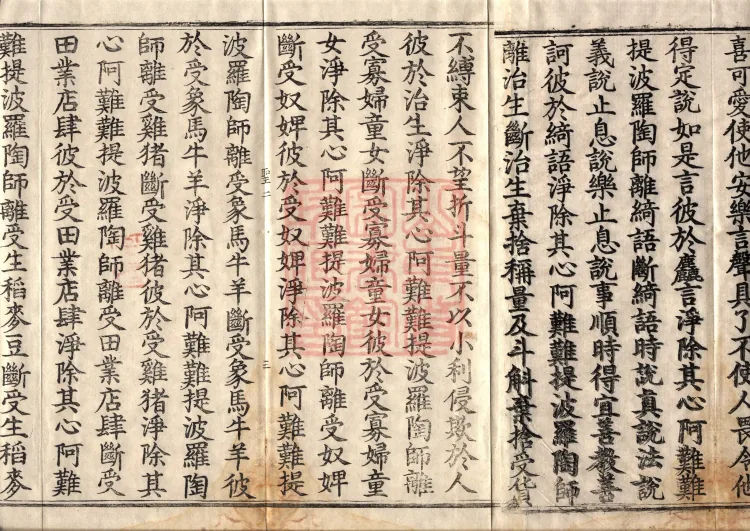 喜可愛使他安樂言聲具了不使人畏令他
得定說如是言彼於麤言淨除其心阿難難
提波羅陶師離綺語斷綺語時說真說法說
義說止息說樂止息說事順時得宜善教善
訶彼於綺語淨除其心阿難難提波羅陶師
離治生斷治生棄捨稱量及斗斛棄捨受貨
不縛束人不望折斗量不以小利侵欺於人
彼於治生淨除其心阿難難提波羅陶師離
受寡婦童女斷受寡婦童女彼於受寡婦童
女淨除其心阿難難提波羅陶師離受奴婢
斷受奴婢彼於受奴婢淨除其心阿難難提
聖二
三
波羅陶師離受象馬牛羊斷受象馬牛羊彼
於受象馬牛羊淨除其心阿難難提波羅陶
師離受雞猪斷受雞猪彼於受雞猪淨除其
心阿難難提波羅陶師離受田業店肆斷受
田業店肆彼於受田業店肆淨除其心阿難
難提波羅陶師離受生稻麥豆斷受生稻麥